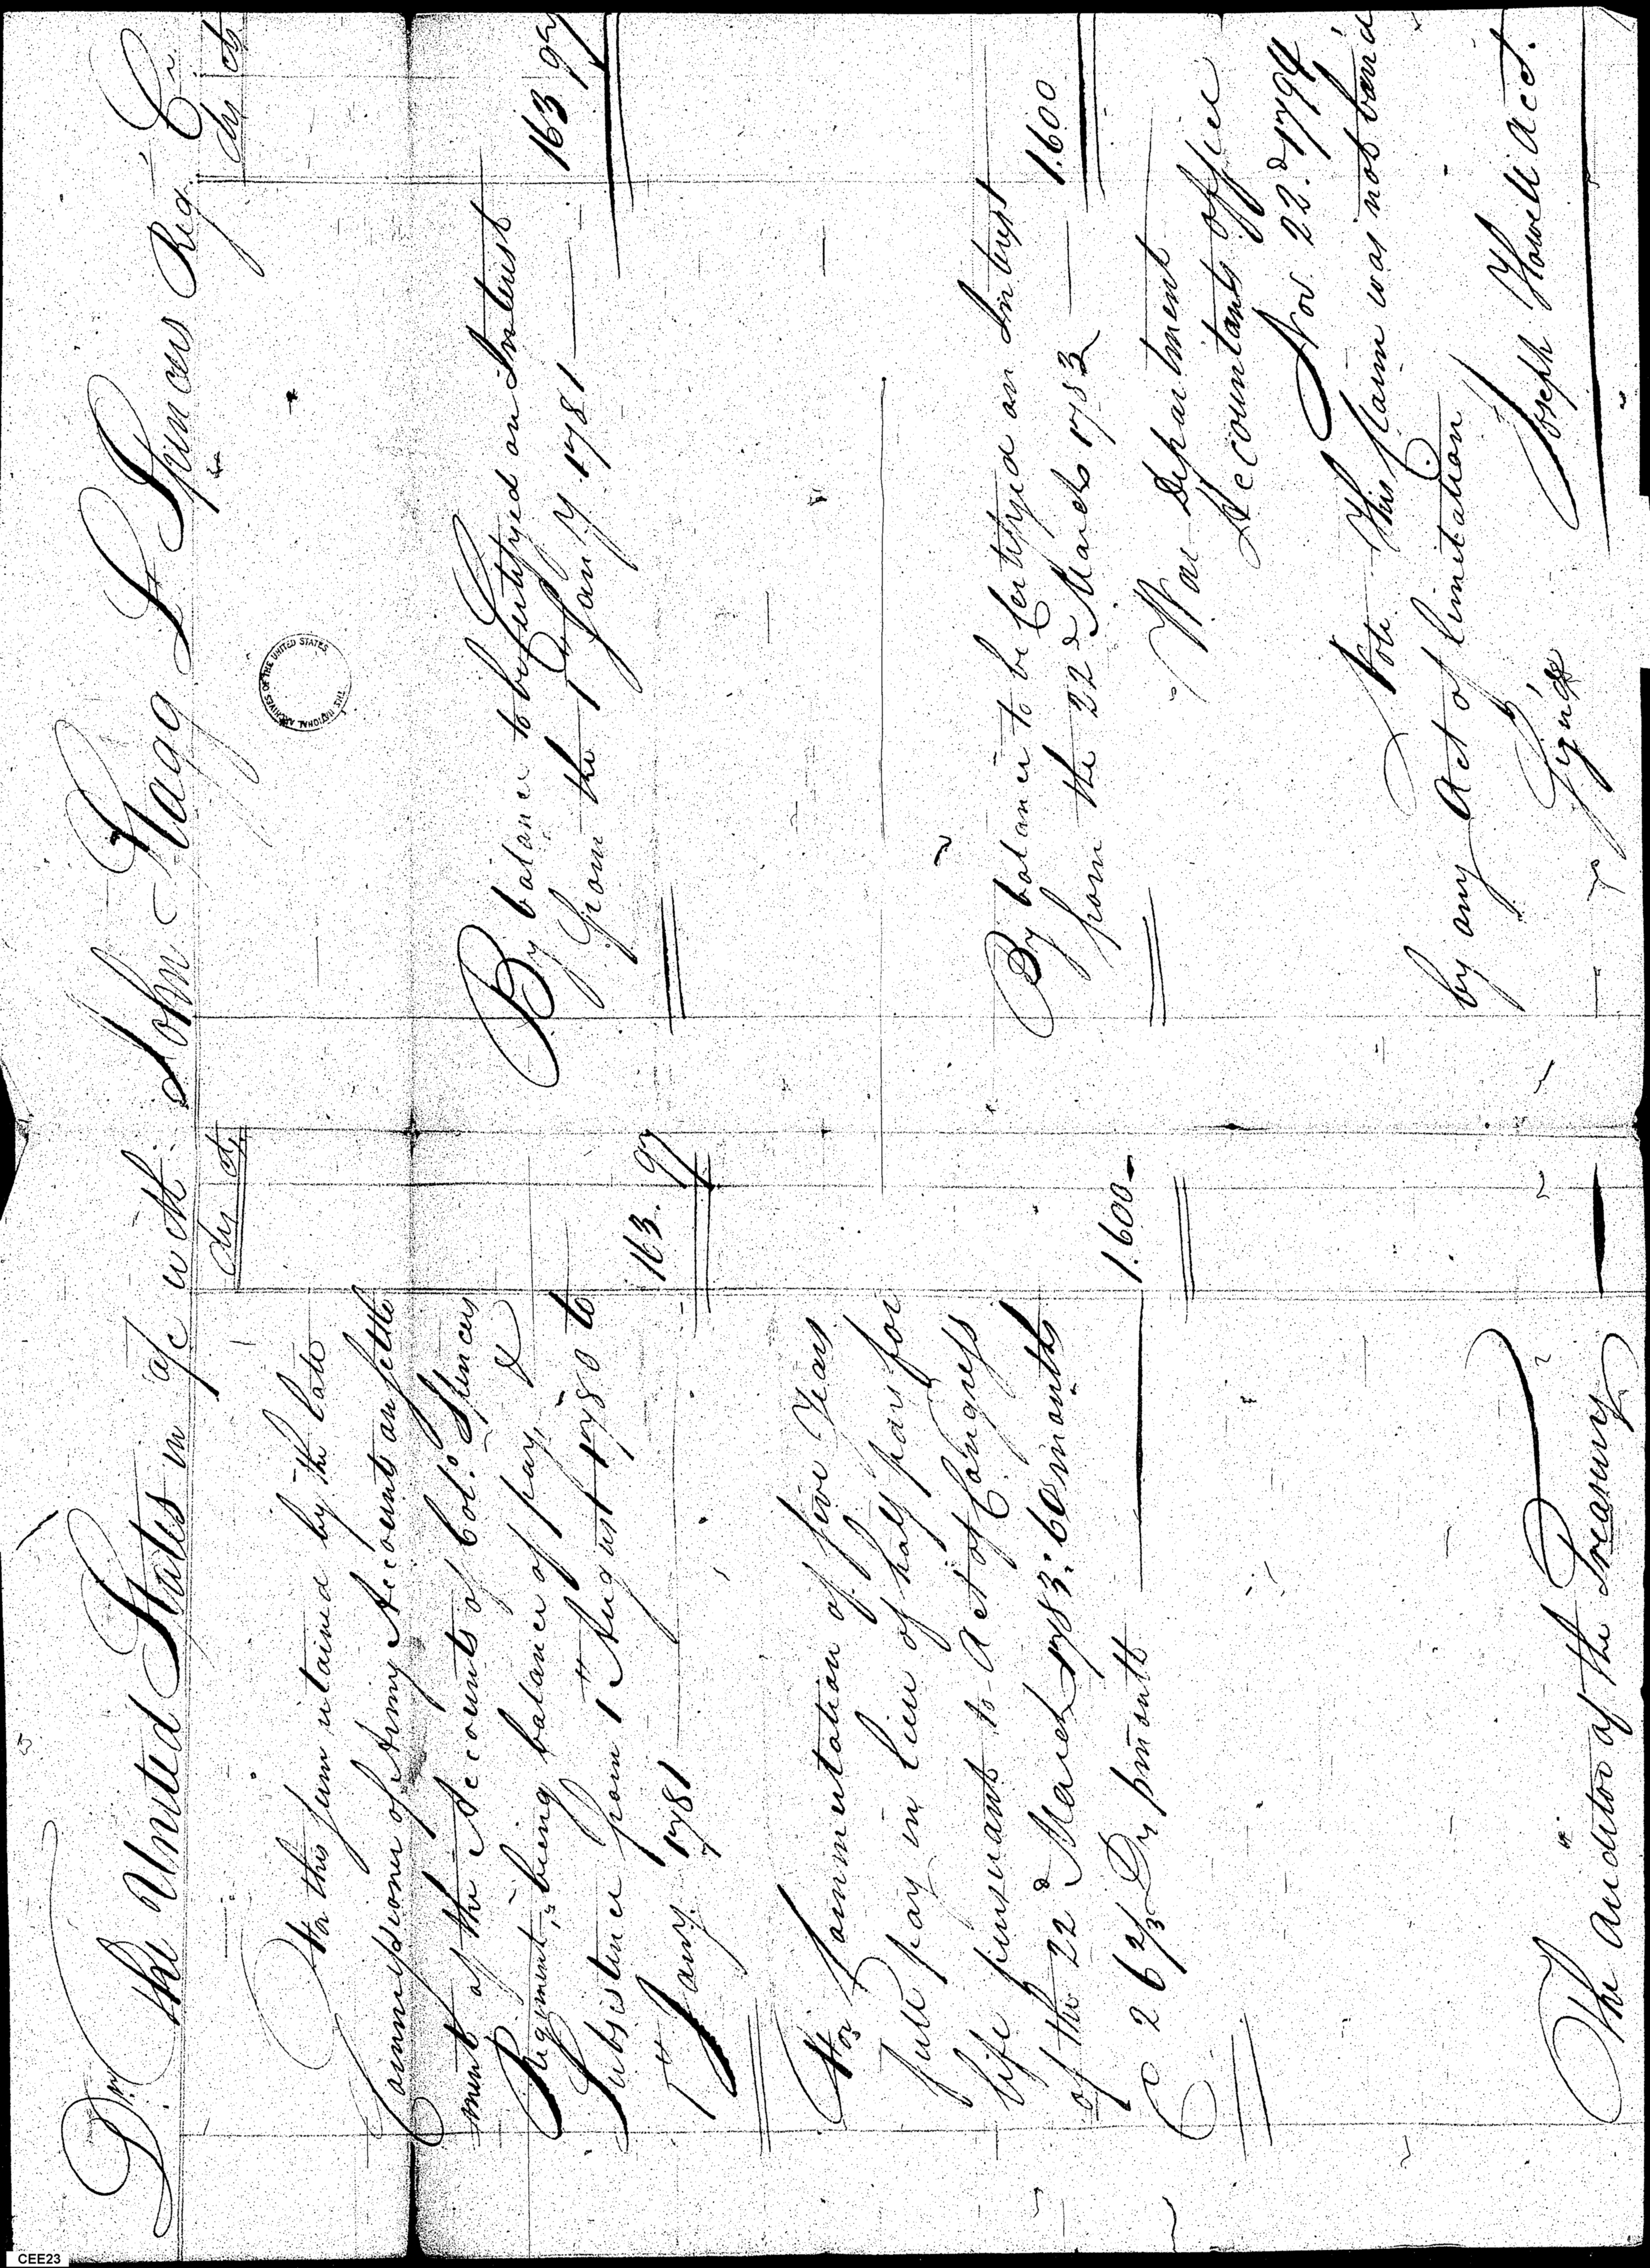 Dr. The United States in a/c with John Stagg Lt Spencers Reg. Cr
Drs cts
For this sum retained by the late
Commissioner of Army Accounts on settle
ment of the Accounts of Col.o Spencers
Regiment, being balance of pay, &
Subsistence from 1st August 1780 to
1st Jany. 1781
163. 97
For Commutation of five Years
full pay in lieu of half pay for
life pursuant to Act of Congress
of the 22d March 1783: 60 months
@ 26 2/3 Drs pmonth
1.600
The Auditor of the Treasury
Drs cts
By balance to be Certifyed on Interest
from the 1st Jany. 1781
163 97
By balance to be Certifyed on Interest
from the 22d March 1783
1.600
War Department
Accountants office
Nov. 22.d 1794
Note. This Claim was not barr'd
by any Act of limitation
Sign'd
Joseph Howell acct.
THE NATIONAL ARCHIVES OF THE UNITED STATES
CEE23